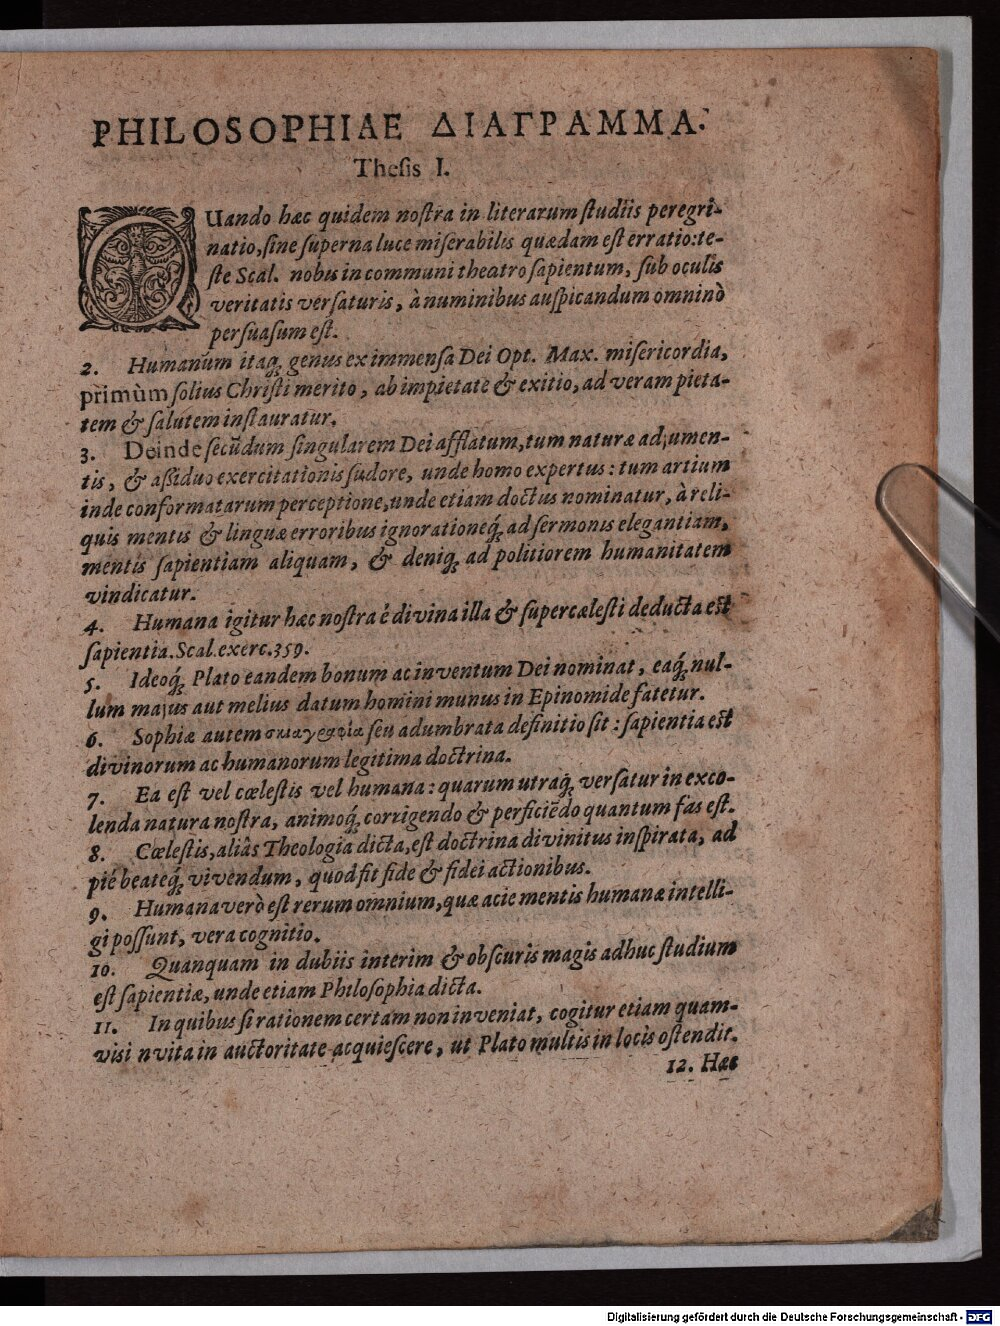 PHILOSOPHIAE ΔΙΑΓΡΑΜΜΑ.
Thesis I.
QUando hæc quidem nostra in literarum studiis peregri-
natio, sine superna luce miserabilis quædam est erratio: te-
ste Scal. nobis in communi theatro sapientum, sub oculis
veritatis versaturis, à numinibus auspicandum omninò
persuasum est.
2. Humanum itaq; genus ex immensa Dei Opt. Max. misericordia,
primùm solius Christi merito, ab impietate & exitio, ad veram pieta-
tem & salutem instauratur.
3. Deinde secũdum singularem Dei afflatum, tum naturæ adjumen-
tis, & aßiduo exercitationis sudore, unde homo expertus: tum artium
inde conformatarum perceptione, unde etiam doctus nominatur, à reli-
quis mentis & linguæ erroribus ignorationeq́; ad sermonis elegantiam,
mentis sapientiam aliquam, & deniq; ad politiorem humanitatem
vindicatur.
4. Humana igitur hæc nostra è divina illa & supercælesti deducta est
sapientia. Scal. exerc. 359.
5. Ideoq́; Plato eandem bonum ac inventum Dei nominat, eaq́; nul-
lum majus aut melius datum homini munus in Epinomide fatetur.
6. Sophiæ autem σκιαγραφία seu adumbrata definitio sit: sapientia est
divinorum ac humanorum legitima doctrina.
7. Ea est vel cœlestis vel humana: quarum utraq́; versatur in exco-
lenda natura nostra, animoq́; corrigendo & perficiẽdo quantum fas est.
8. Cœlestis, aliâs Theologia dicta, est doctrina divinitus inspirata, ad
piè beateq́; vivendum, quod fit fide & fidei actionibus.
9. Humana verò est rerum omnium, quæ acie mentis humanæ intelli-
gi possunt, vera cognitio.
10. Quanquam in dubiis interim & obscuris magis adhuc studium
est sapientiæ, unde etiam Philosophia dicta.
11. In quibus si rationem certam non inveniat, cogitur etiam quam-
visi nvita in auctoritate acquiescere, ut Plato multis in locis ostendit.
12. Hæc
Digitalisierung gefördert durch die Deutsche Forschungsgemeinschaft - DFG